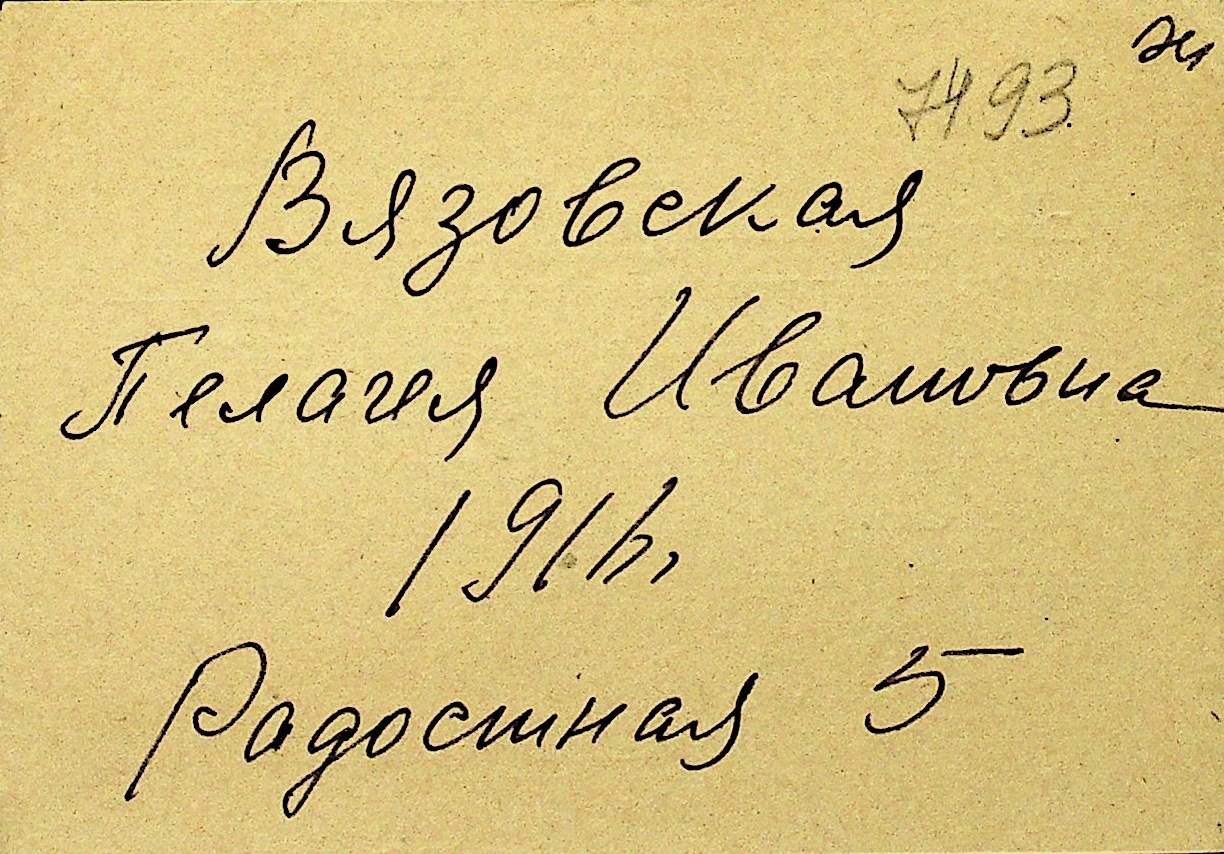 7493
Вязовская
Пелагея Ивановна
Радостная 5